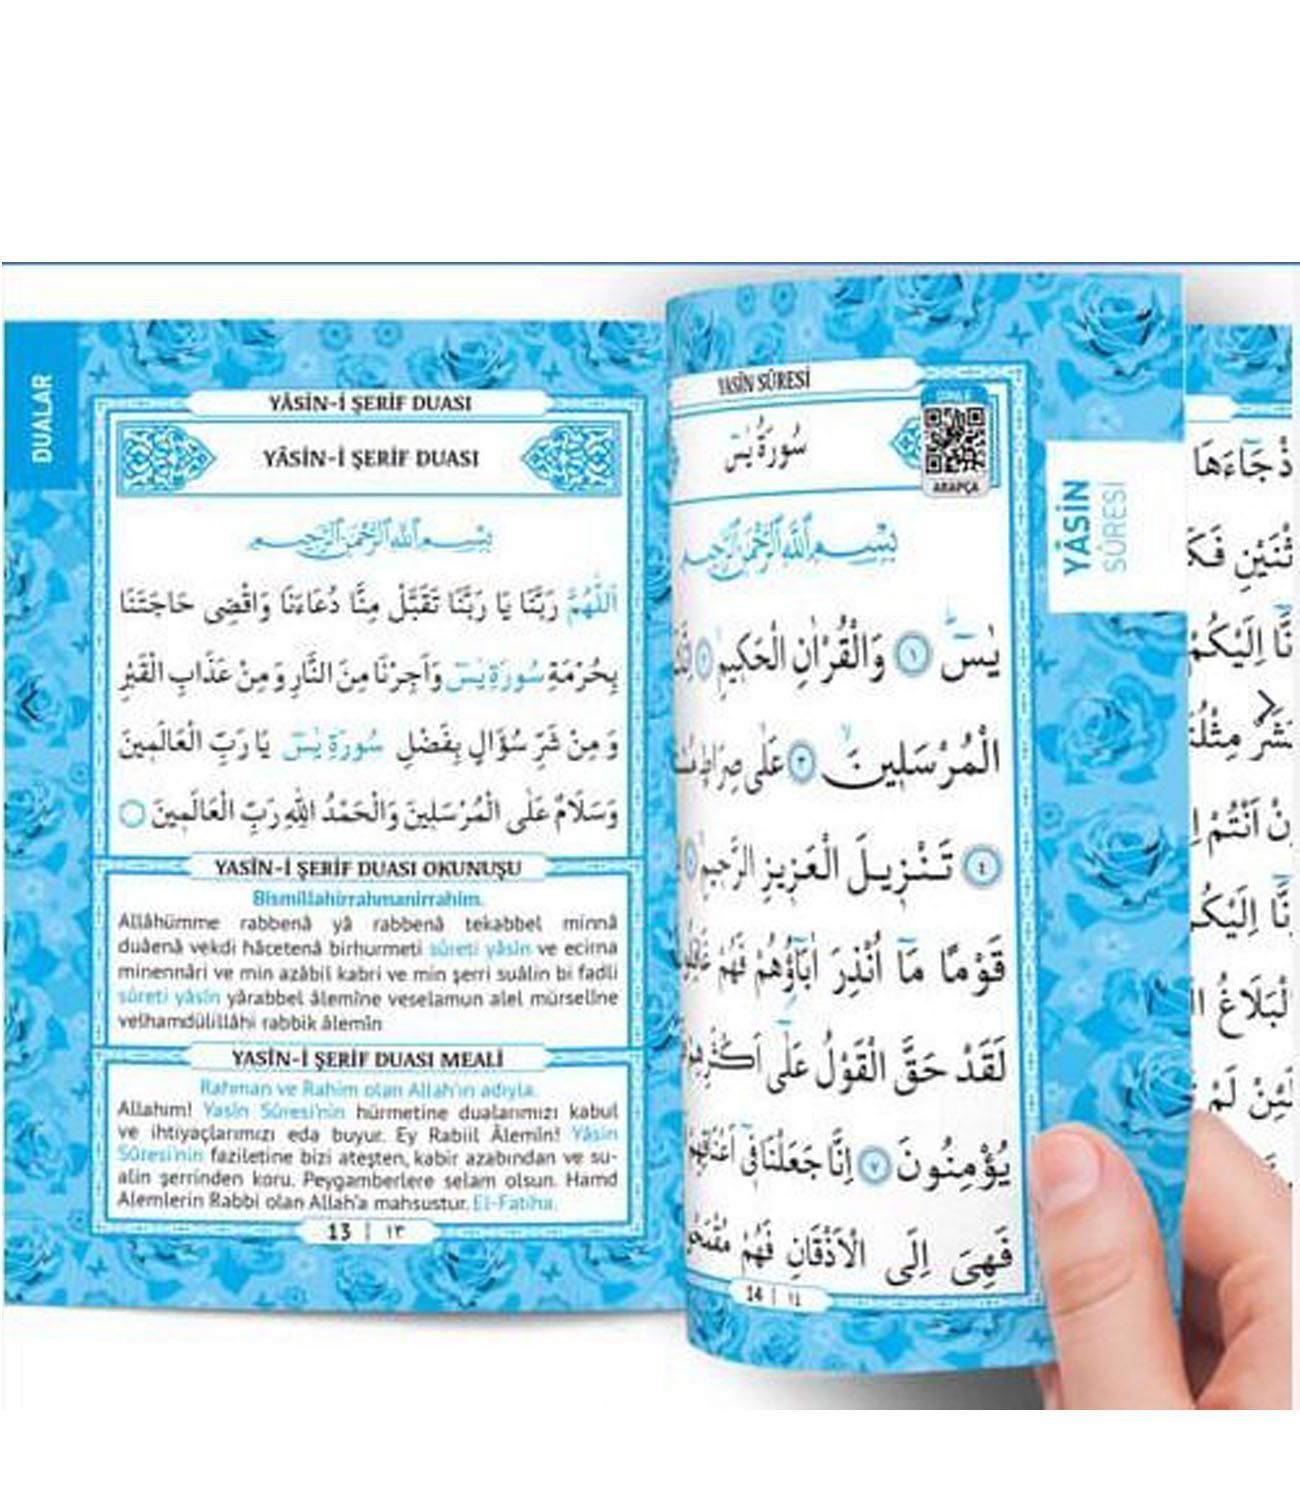 DUALAR
YÂSİN-İ ŞERİF DUASI
YÂSİN-İ ŞERİF DUASI
بِسْمِ اللّٰهِ الرَّحْمٰنِ الرَّحِيمِ
اَللّٰهُمَّ رَبَّنَا يَا رَبَّنَا تَقَبَّلْ مِنَّا دُعَاءَنَا وَاقْضِى حَاجَتَنَا
بِحُرْمَةِ سُورَةِ يٰسٓ وَاَجِرْنَا مِنَ النَّارِ وَمِنْ عَذَابِ الْقَبْرِ
وَمِنْ شَرِّ سُؤَالٍ بِفَضْلِ سُورَةِ يٰسٓ يَا رَبَّ الْعَالَمِينَ
وَسَلَامٌ عَلَى الْمُرْسَلِينَ وَالْحَمْدُ اللّٰهِ رَبِّ الْعَالَمِينَ
YASİN-İ ŞERİF DUASI OKUNUŞU
Bismillahirrahmanirrahim.
Allâhümme rabbenâ yâ rabbenâ tekabbel minnâ
duâenâ vekdi hâcetenâ birhurmeti sûreti yâsîn ve ecirna
minennâri ve min azâbil kabri ve min şerri suâlin bi fadli
sûreti yâsîn yârabbel âlemîne veselamun alel mürselîne
velhamdülillâhi rabbik âlemîn
YASİN-İ ŞERİF DUASI MEALİ
Rahman ve Rahim olan Allah'ın adıyla.
Allahım! Yasin Sûresi'nin hürmetine dualarımızı kabul
ve ihtiyaçlarımızı eda buyur. Ey Rabiil Âlemîn! Yâsin
Sûresi'nin faziletine bizi ateşten, kabir azabından ve su-
alin şerrinden koru. Peygamberlere selam olsun. Hamd
Alemlerin Rabbi olan Allah'a mahsustur. El-Fatiha.
13 | ١٣
YASİN SÛRESİ
سُورَةُ يٰسٓ
ARAPÇA
بِسْمِ اللّٰهِ الرَّحْمٰنِ الرَّحِيمِ
يٰسٓ ١ وَالْقُرْاٰنِ الْحَكِيمِ ٢
الْمُرْسَلِينَ ٣ عَلٰى صِرَاطٍ
٤ تَنْزِيلَ الْعَزِيزِ الرَّحِيمِ
قَوْمًا مَٓا اُنْذِرَ اٰبَٓاؤُهُمْ فَهُمْ
لَقَدْ حَقَّ الْقَوْلُ عَلٰٓى اَكْثَرِهِمْ
يُؤْمِنُونَ ٧ اِنَّا جَعَلْنَا فٖٓى اَعْنَاقِهِمْ
فَهِىَ اِلَى الْاَذْقَانِ فَهُمْ
14 | ١٤
YÂSİN
SÛRESİ
جَٓاءَهَا
اِلَيْكُمْ
اَنْتُمْ
لَئِنْ لَمْ